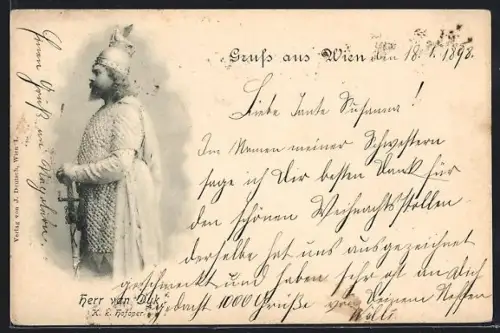 Gruß aus Wien den 18. 1. 1898.
Liebe Tante Susanna!
Im Namen meiner Schwestern
sage ich Dir besten Dank für
den schönen Weihnachtsstollen
derselbe hat uns ausgezeichnet
geschmeckt und haben sehr oft an Dich
gedacht 1000 Grüße von Deinem Neffen
Einen Gruß an
Verlag von J. Deutsch, Wien I.
Herr van Dyk
K. k. Hofoper.